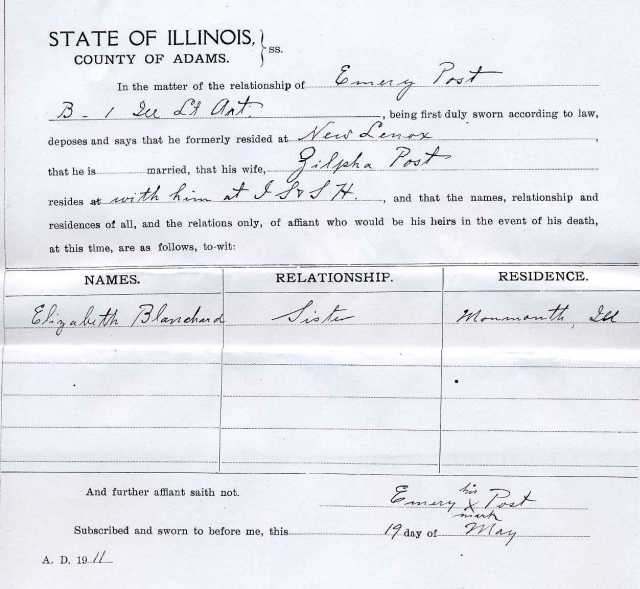 STATE OF ILLINOIS, } ss.
COUNTY OF ADAMS.
In the matter of the relationship of Emery Post
B - 1 Ill Lt Art. , being first duly sworn according to law,
deposes and says that he formerly resided at New Lenox ,
that he is married, that his wife, Zilpha Post
resides at with him at I S & S H. , and that the names, relationship and
residences of all, and the relations only, of affiant who would be his heirs in the event of his death,
at this time, are as follows, to-wit:
NAMES. RELATIONSHIP. RESIDENCE.
Elizabeth Blanchard Sister Monmouth, Ill
And further affiant saith not.
Emery his X mark Post
Subscribed and sworn to before me, this 19 day of May
A. D. 1911